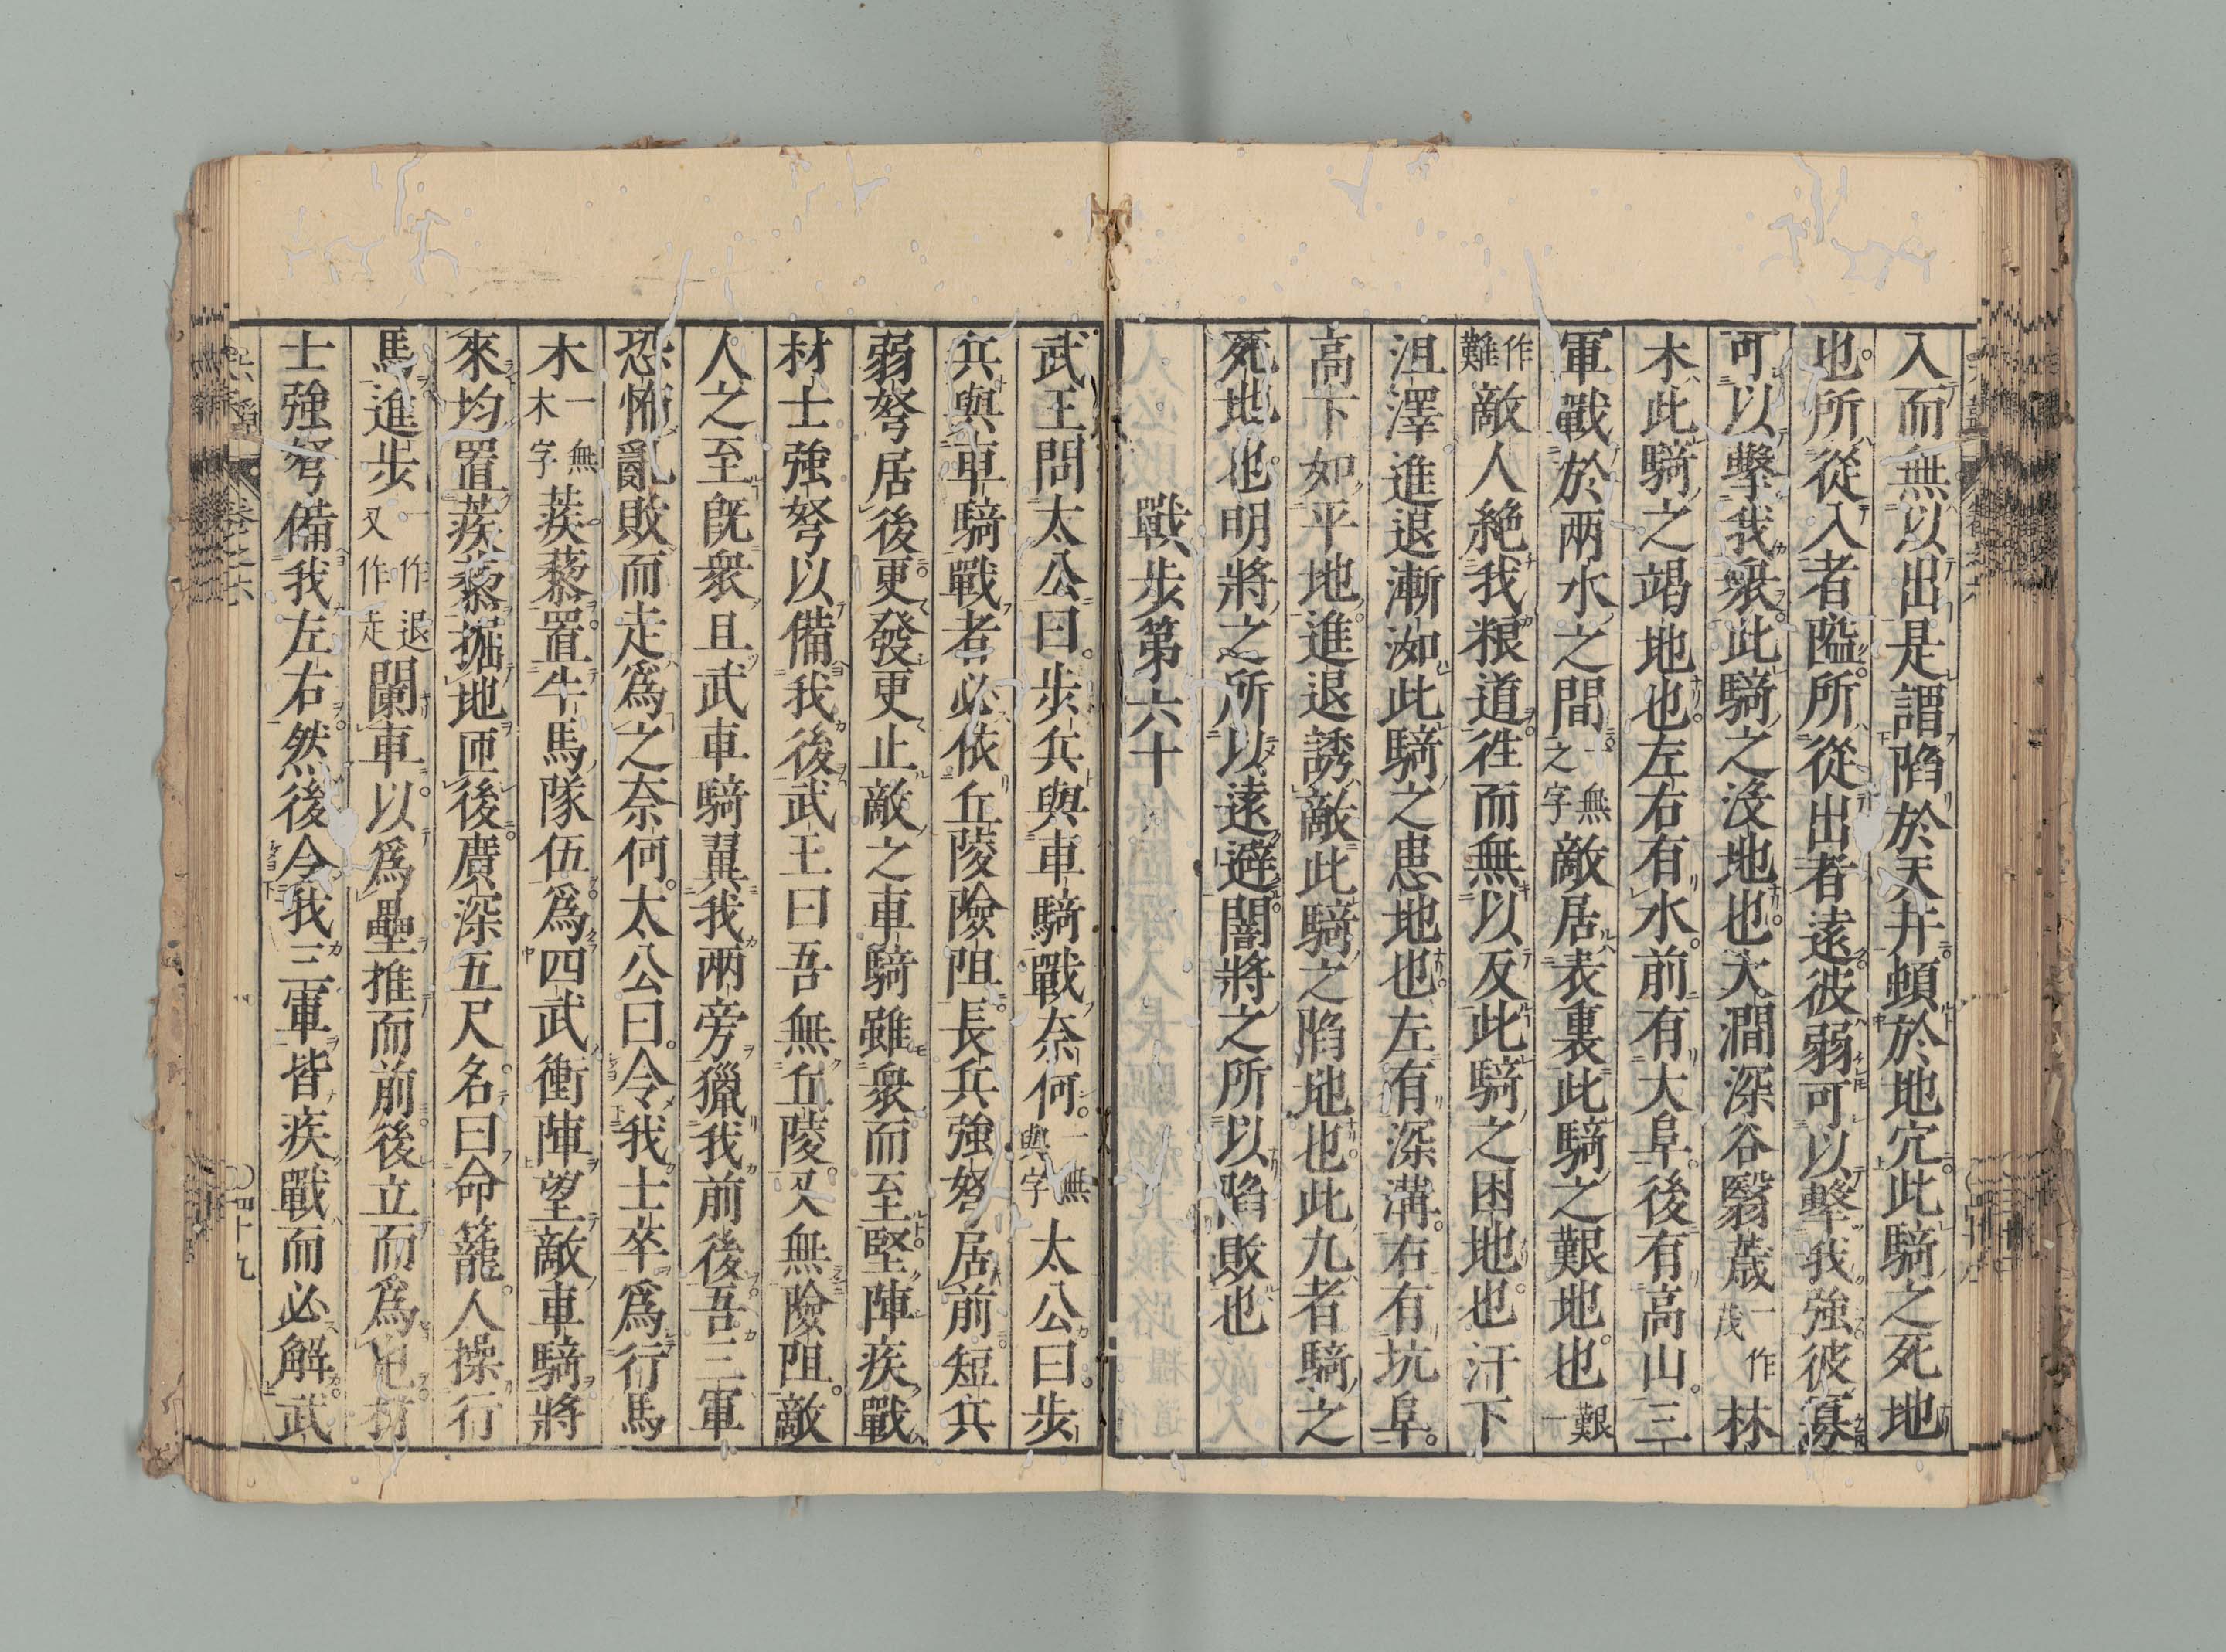 入而無以出是謂陷於天井頓於地穴此騎之死地
也所從入者隘所從出者遠彼弱可以擊我強彼寡
可以擊我衆此騎之沒地也大澗深谷翳薉一作茂林
木此騎之竭地也左右有水前有大阜後有高山三
軍戰於兩水之間一無之字敵居表裏此騎之艱地也艱一
作難敵人絶我粮道往而無以反此騎之困地也汗下
沮澤進退漸洳此騎之患地也左有深溝右有坑阜
高下如平地進退誘敵此騎之陷地也此九者騎之
死地也明將之所以遠避闇將之所以陷敗也
戰步第六十
武王問太公曰步兵與車騎戰奈何一無與字太公曰步
兵與車騎戰者必依丘陵險阻長兵強弩居前短兵
弱弩居後更發更止敵之車騎雖衆而至堅陣疾戰
材士強弩以備我後武王曰吾無丘陵又無險阻敵
人之至既衆且武車騎翼我兩旁獵我前後吾三軍
恐怖亂敗而走爲之奈何太公曰令我士卒爲行馬
木一無木字蒺藜置牛馬隊伍爲四武衝陣望敵車騎將
來均置蒺藜掘地匝後廣深五尺名曰命籠人操行
馬進步一作退又作走闌車以爲壘推而前後立而爲屯材
士強弩備我左右然後令我三軍皆疾戰而必解武
六韜 卷之六 四十九